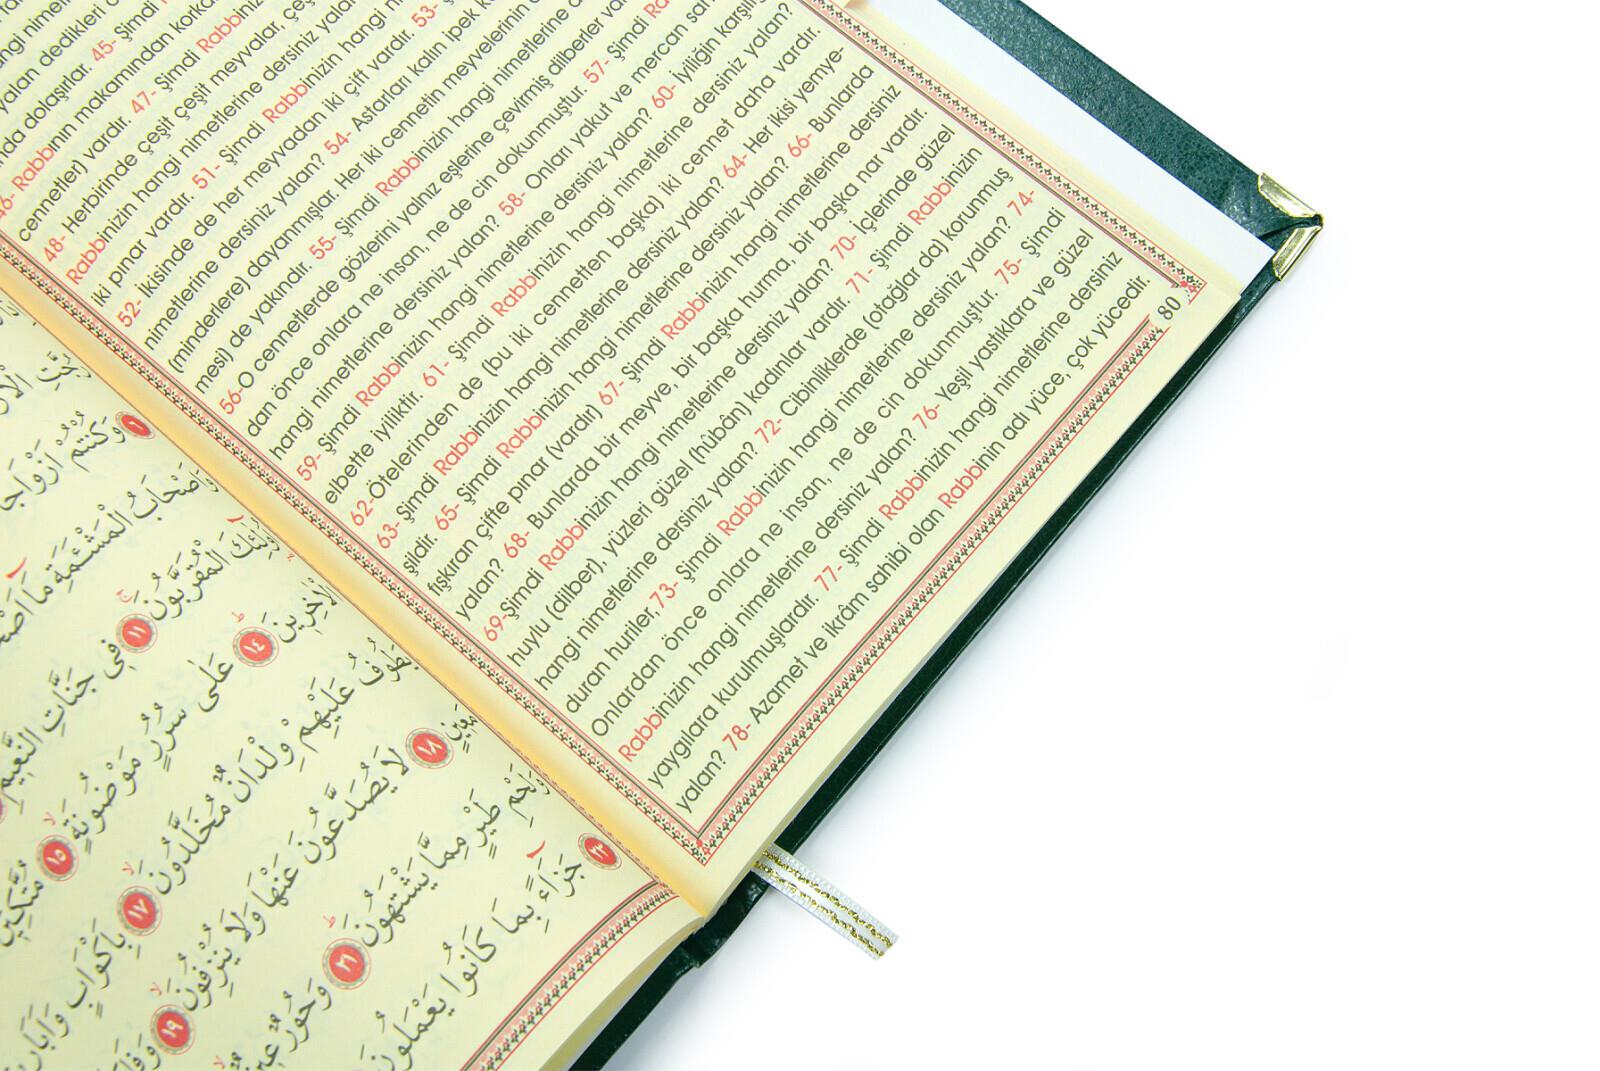 yalan dedikleri
nda dolaşırlar. 45- Şimdi
46- Rabbının makamından korka
cennetler) vardır. 47- Şimdi Rabbinizin hangi ni
48- Herbirinde çeşit çeşit meyvalar, çeş
Rabbinizin hangi nimetlerine dersiniz yalan
iki pınar vardır. 51- Şimdi Rabbinizin hangi nimetlerine
52- İkisinde de her meyvadan iki çift vardır. 53- Ş
nimetlerine dersiniz yalan? 54- Astarları kalın ipek k
(minderlere) dayanmışlar. Her iki cennetin meyvelerinin
mesi) de yakındır. 55- Şimdi Rabbinizin hangi nimetlerine
56-O cennetlerde gözlerini yalnız eşlerine çevirmiş dilberler var
dan önce onlara ne insan, ne de cin dokunmuştur. 57- Şimdi
hangi nimetlerine dersiniz yalan? 58- Onları yakut ve mercan
59- Şimdi Rabbinizin hangi nimetlerine dersiniz yalan? 60- İyiliğin karşılığı
elbette iyiliktir. 61- Şimdi Rabbinizin hangi nimetlerine dersiniz yalan?
62-Ötelerinden de (bu iki cennetten başka) iki cennet daha vardır.
63- Şimdi Rabbinizin hangi nimetlerine dersiniz yalan? 64- Her ikisi yemye-
şildir. 65- Şimdi Rabbinizin hangi nimetlerine dersiniz yalan? 66- Bunlarda
fışkıran çifte pınar (vardır) 67- Şimdi Rabbinizin hangi nimetlerine dersiniz
yalan? 68- Bunlarda bir meyve, bir başka hurma, bir başka nar vardır.
69-Şimdi Rabbinizin hangi nimetlerine dersiniz yalan? 70- İçlerinde güzel
huylu (dilber), yüzleri güzel (hûbân) kadınlar vardır. 71- Şimdi Rabbinizin
hangi nimetlerine dersiniz yalan? 72- Cibinliklerde (otağlar da) korunmuş
duran huriler,73- Şimdi Rabbinizin hangi nimetlerine dersiniz yalan? 74-
Onlardan önce onlara ne insan, ne de cin dokunmuştur. 75- Şimdi
Rabbinizin hangi nimetlerine dersiniz yalan? 76- Yeşil yastıklara ve güzel
yaygılara kurulmuşlardır. 77- Şimdi Rabbinizin hangi nimetlerine dersiniz
yalan? 78- Azamet ve ikrâm sahibi olan Rabbinin adı yüce, çok yücedir.
80
وَكُنْتُمْ اَزْوَاجًا
وَاَصْحَابُ الْمَشْـَٔمَةِ مَٓا اَصْحَ
الْمُقَرَّبُونَ ۝١١ فِي جَنَّاتِ النَّعِيمِ
الْاٰخِرِينَ ۝١٤ عَلٰى سُرُرٍ مَوْضُونَةٍ ۝١٥ مُتَّكِـِٔينَ
يَطُوفُ عَلَيْهِمْ وِلْدَانٌ مُخَلَّدُونَ ۝١٧ بِاَكْوَابٍ وَاَبَارِيقَ
مَعِينٍ ۝١٨ لَا يُصَدَّعُونَ عَنْهَا وَلَا يُنْزِفُونَ ۝١٩
وَلَحْمِ طَيْرٍ مِمَّا يَشْتَهُونَ ۝٢١ وَحُورٌ عِينٌ
جَزَٓاءً بِمَا كَانُوا يَعْمَلُونَ